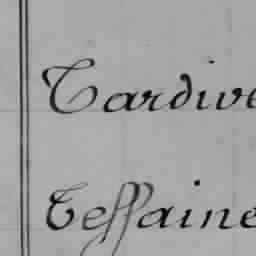 Tardive
Teffaine